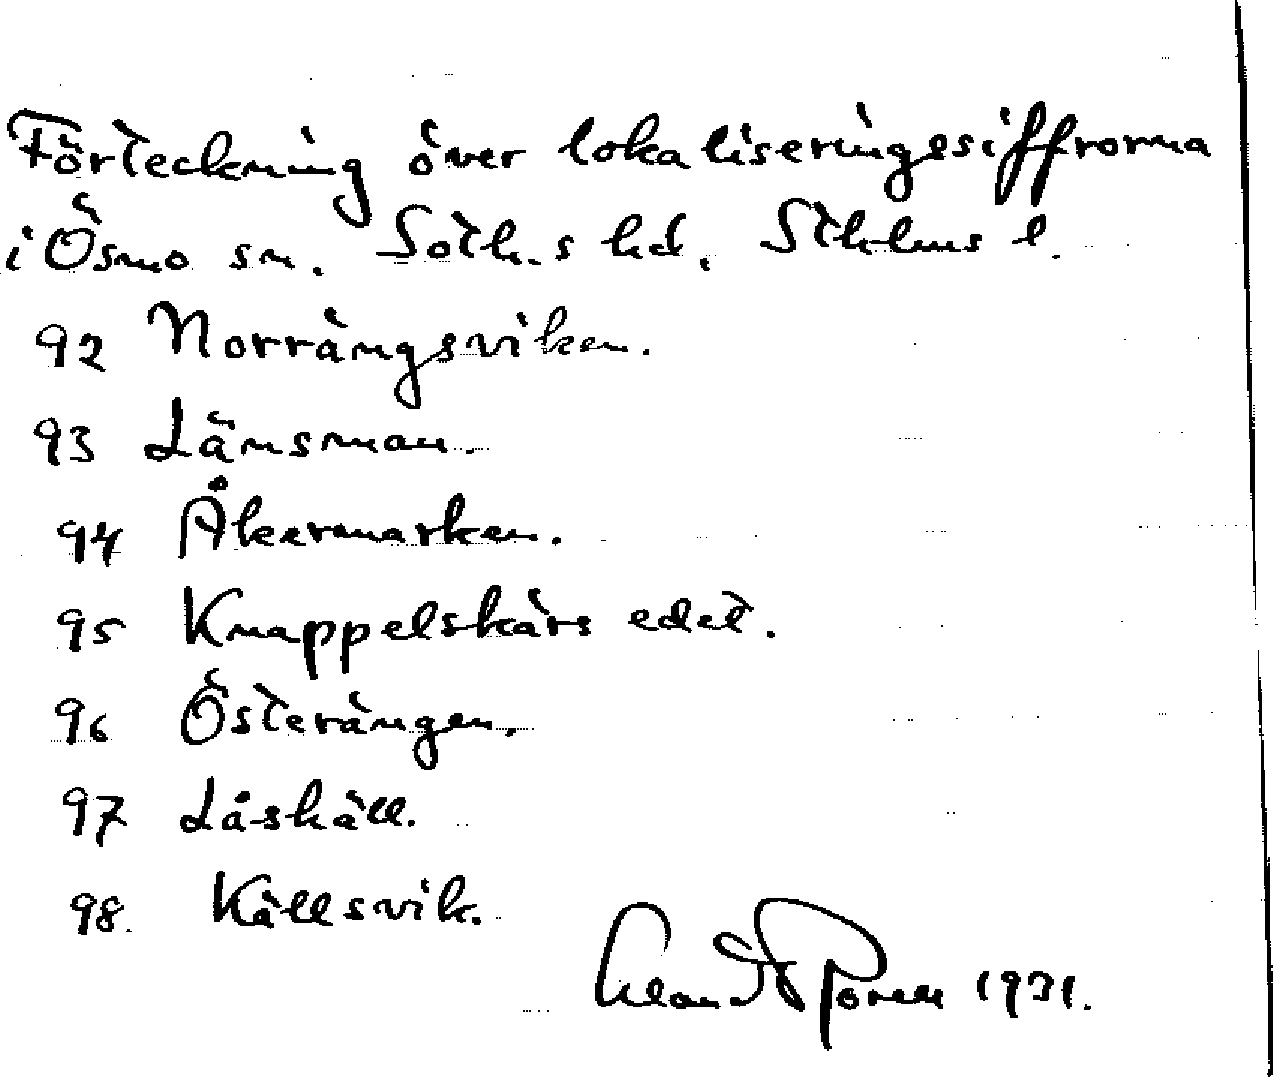 Förteckning över lokaliseringssiffrorna
i Ösmo sn. Soth.s hd. Sthlms l.
92 Norrängsviken.
93 Länsman.
94 Åkermarken.
95 Knappelskärs edet.
96 Österängen.
97 Låskäll.
98. Källsvik.
1931.